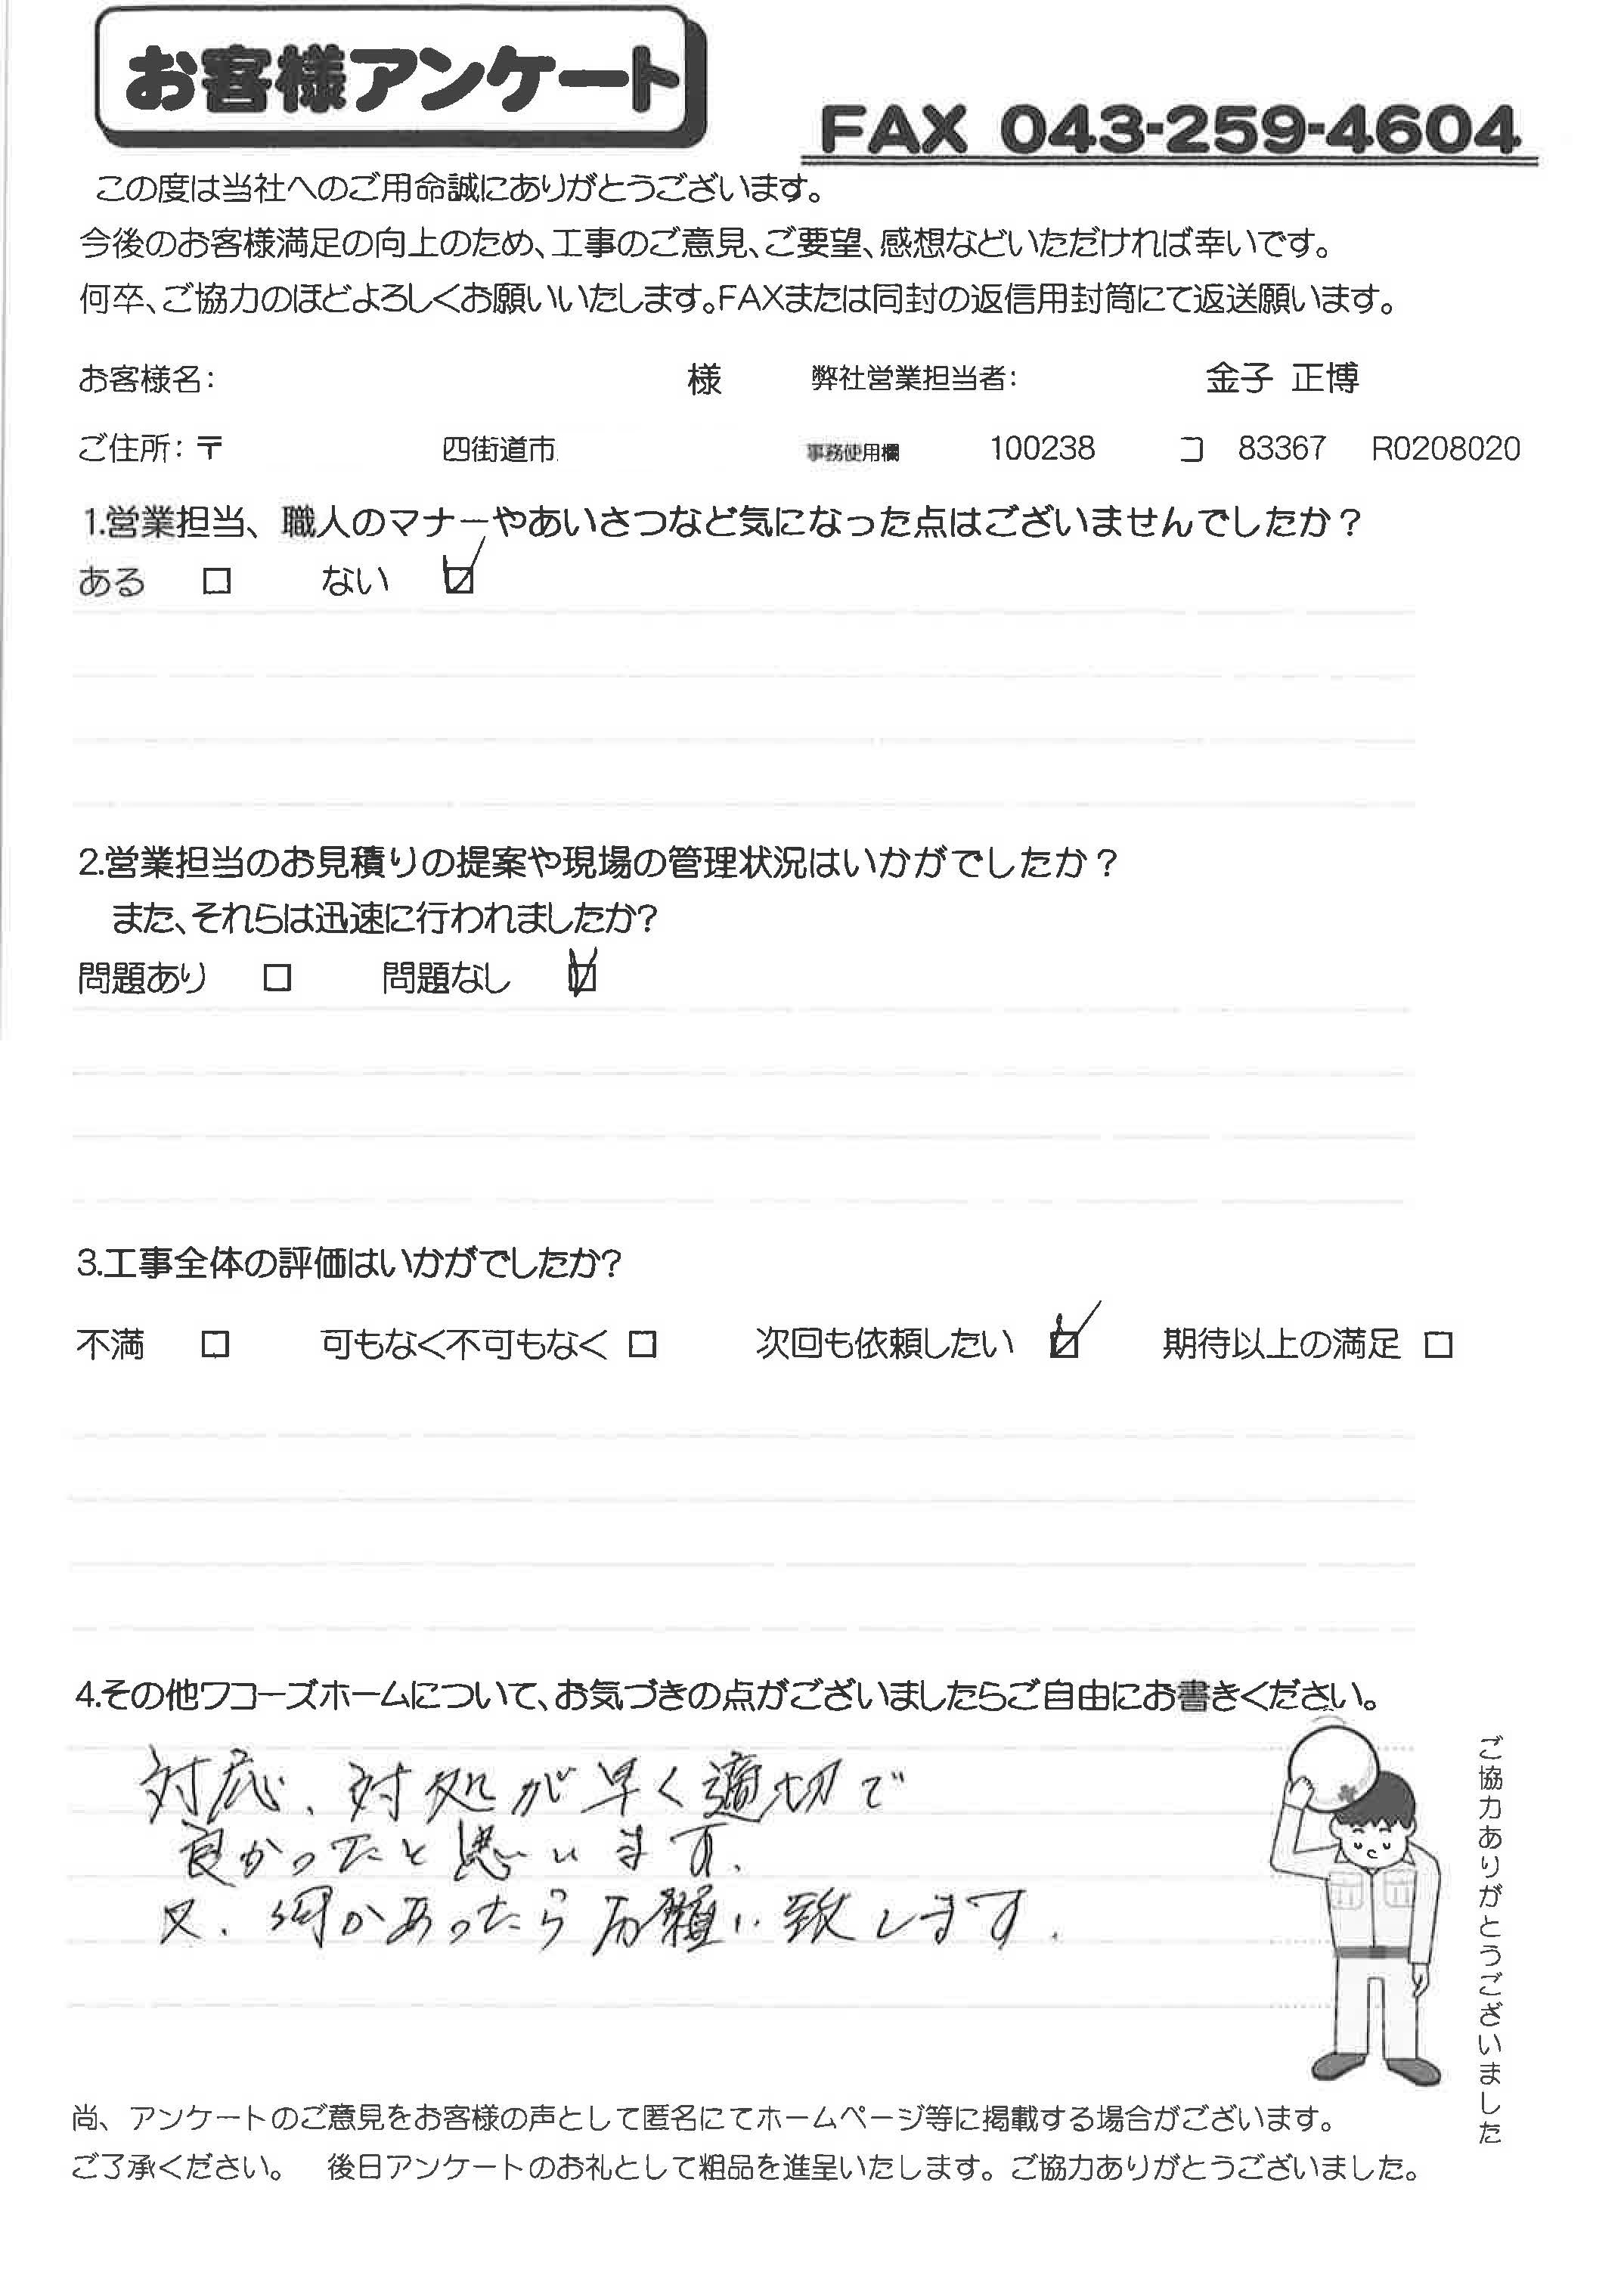 お客様アンケート
FAX 043-259-4604
この度は当社へのご用命誠にありがとうございます。
今後のお客様満足の向上のため、工事のご意見、ご要望、感想などいただければ幸いです。
何卒、ご協力のほどよろしくお願いいたします。FAXまたは同封の返信用封筒にて返送願います。
お客様名： 様 弊社営業担当者： 金子 正博
ご住所：〒 四街道市 事務使用欄 100238 コ 83367 R0208020
1.営業担当、職人のマナーやあいさつなど気になった点はございませんでしたか？
ある □ ない ☑
2.営業担当のお見積りの提案や現場の管理状況はいかがでしたか？
また、それらは迅速に行われましたか？
問題あり □ 問題なし ☑
3.工事全体の評価はいかがでしたか？
不満 □ 可もなく不可もなく □ 次回も依頼したい ☑ 期待以上の満足 □
4.その他ワコーズホームについて、お気づきの点がございましたらご自由にお書きください。
対応、対処が早く適切で
良かったと思います。
又、何かあったらお願い致します。
ご協力ありがとうございました
尚、アンケートのご意見をお客様の声として匿名にてホームページ等に掲載する場合がございます。
ご了承ください。 後日アンケートのお礼として粗品を進呈いたします。ご協力ありがとうございました。